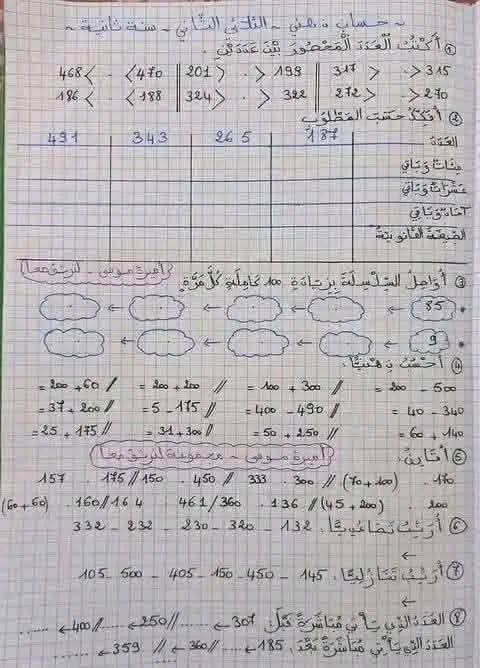 ~ حساب ذهني - الثلاثي الثاني - سنة ثانية ~
① أكتب العدد المحصور بين عددين.
468 < . < 470 || 201 > . > 199 || 317 > . > 315
186 < . < 188 || 324 > . > 322 || 272 > . > 270
② أفكك حسب المطلوب
العدد 187 265 343 491
مئات وباقي
عشرات وباقي
آحاد وباقي
الصيغة القانونية
أميرة موسى - لنرتق معا
③ أواصل السلسلة بزيادة 100 كاملة كل مرة.
• 85 ← ← ← ←
• 9 ← ← ← ←
④ أحسب ذهنيا.
= 200 + 60 // = 200 + 200 // = 100 + 300 // = 200 - 500
= 37 + 200 // = 5 - 175 // = 400 - 490 // = 40 - 340
= 25 + 175 // = 31 + 300 // = 50 + 250 // = 60 + 140
⑤ أقارن.
أميرة موسى - مجموعة لنرتق معا
157 . 175 // 150 . 450 // 333 . 300 // (70 + 100) . 170
(60 + 60) . 160 // 164 . 461 / 360 . 136 // (45 + 200) . 200
⑥ أرتب تصاعديا. 132 - 320 - 230 - 232 - 332
←
⑦ أرتب تنازليا. 145 - 450 - 150 - 405 - 500 - 105
←
⑧ العدد الذي يأتي مباشرة قبل 307 ← ...... // 250 ← ...... // 400 ← ......
العدد الذي يأتي مباشرة بعد. 185 ← ... // 360 ← ... // 359 ← ......